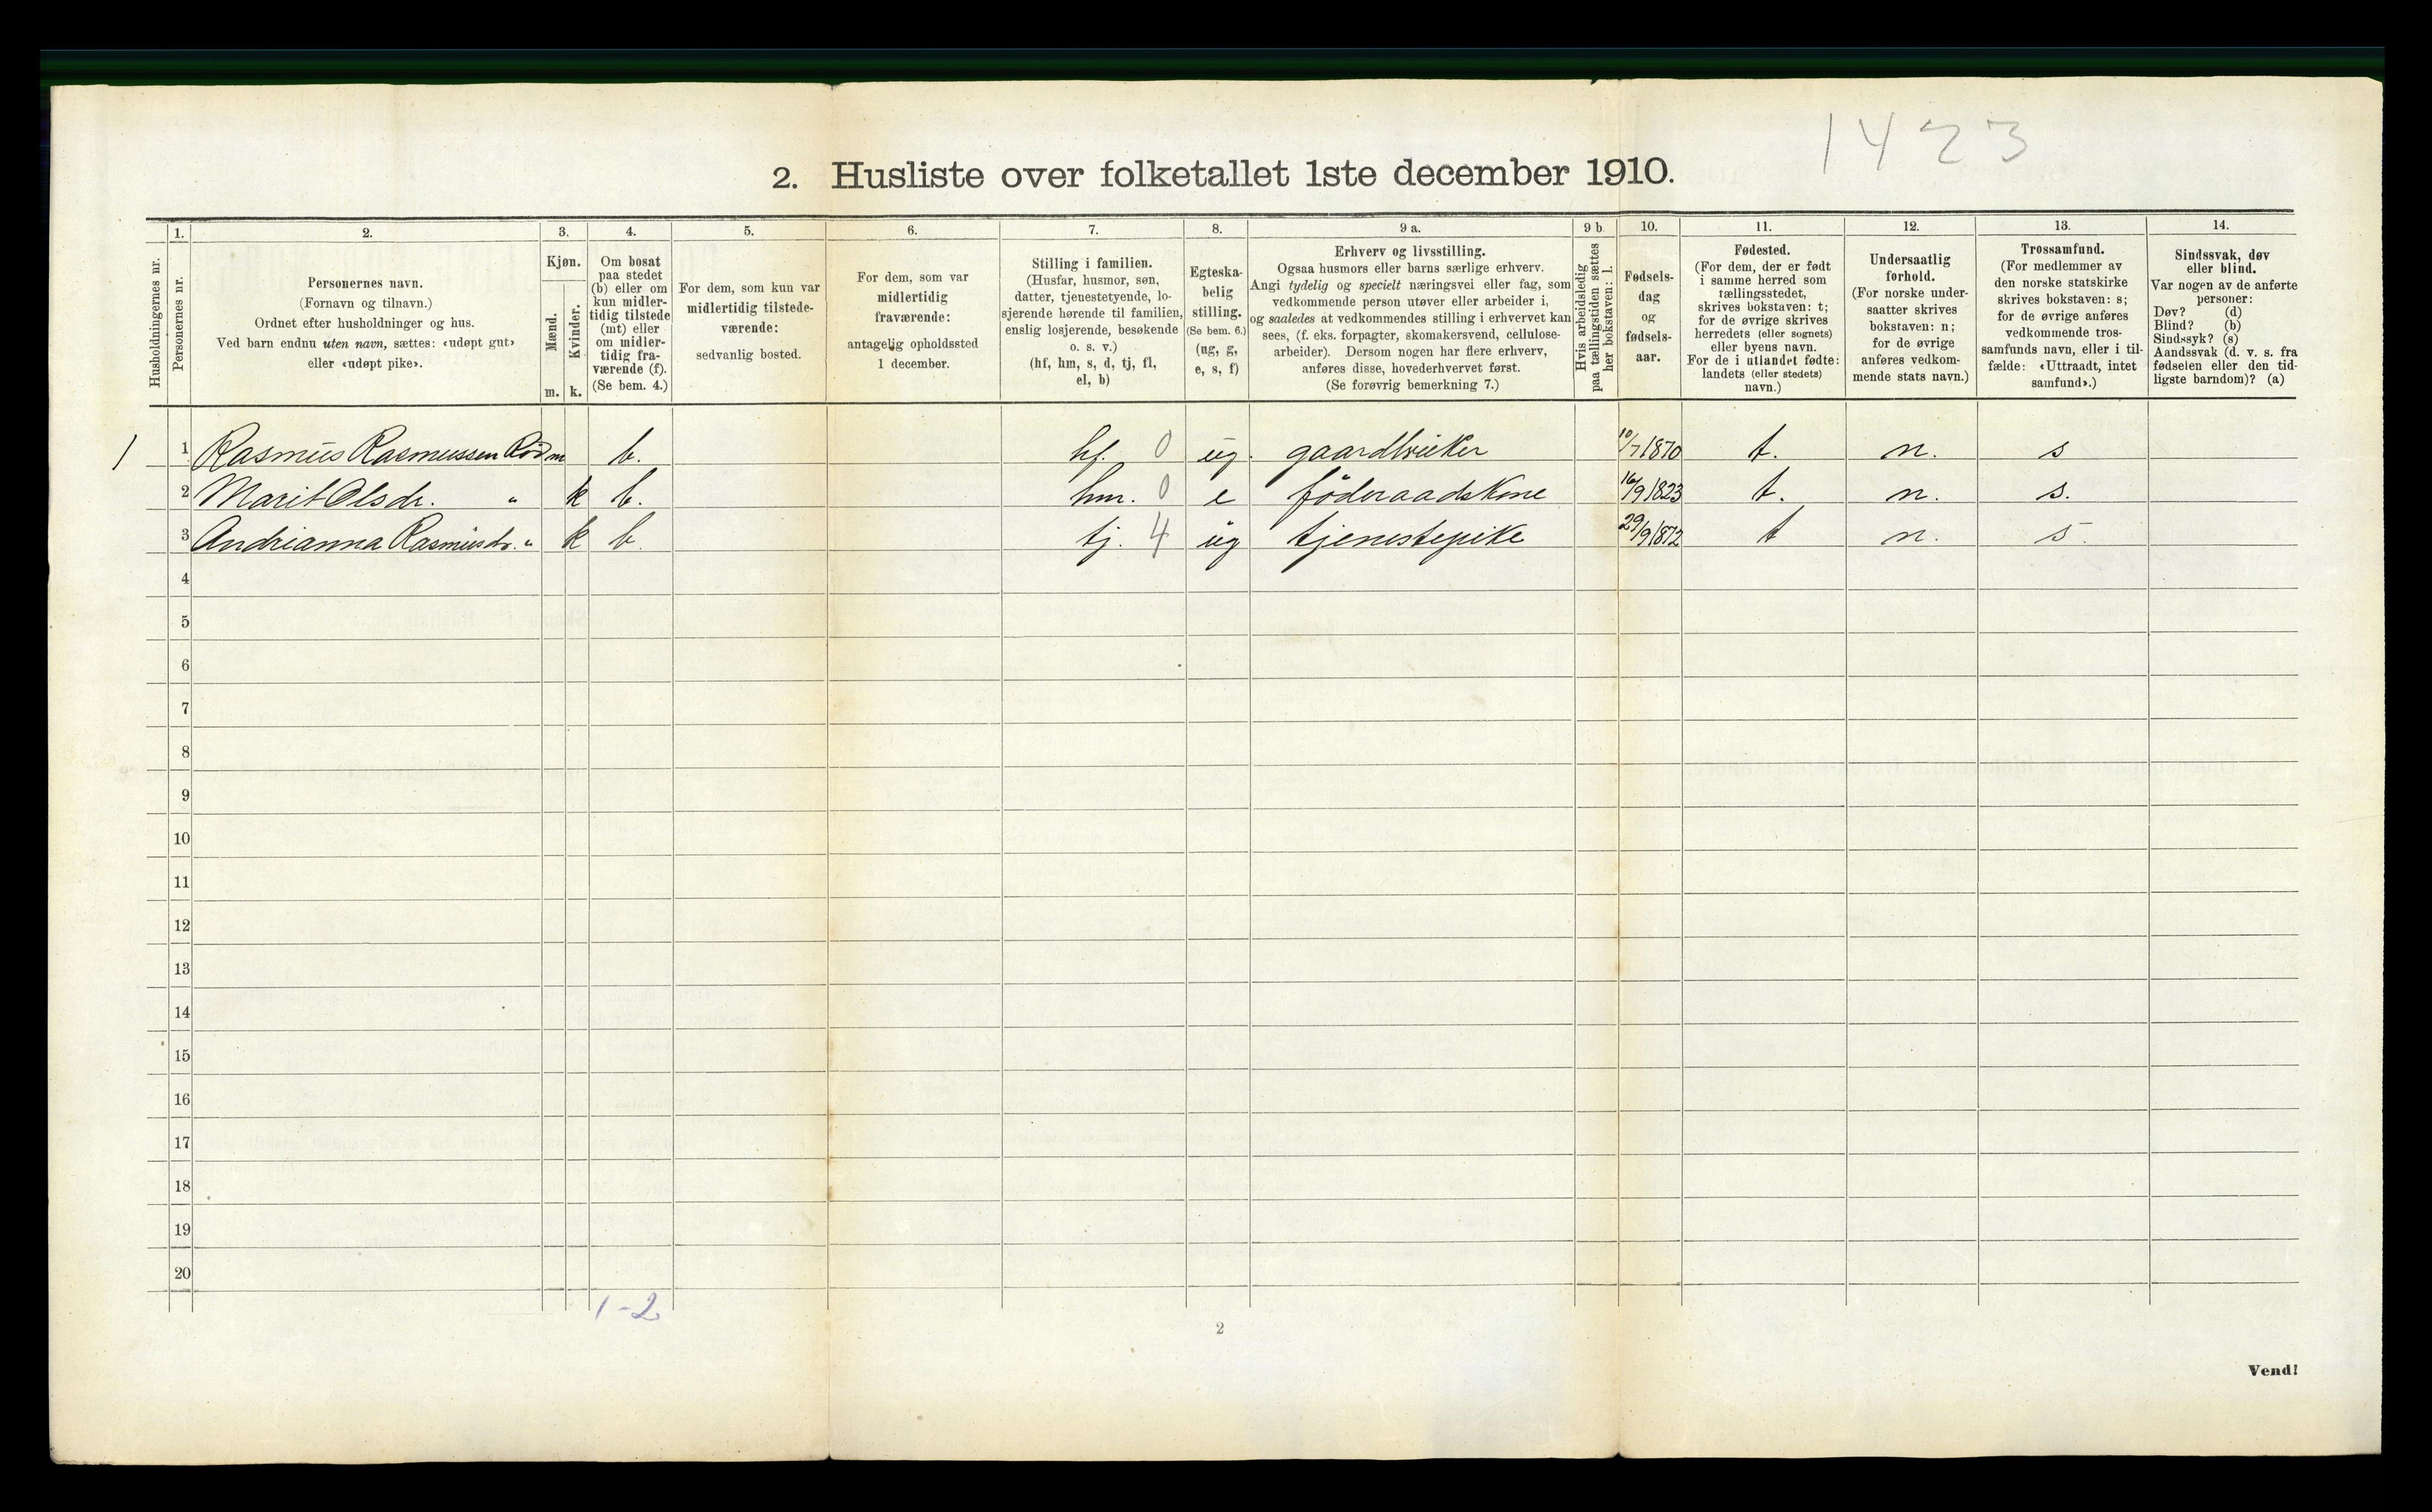 1423
2. Husliste over folketallet 1ste december 1910.
Husholdningernes nr.
1.
Personernes nr.
2.
Personernes navn.
(Fornavn og tilnavn.)
Ordnet efter husholdninger og hus.
Ved barn endnu uten navn, sættes: «udøpt gut»
eller «udøpt pike».
3.
Kjøn.
Mænd.
Kvinder.
m. k.
4.
Om bosat
paa stedet
(b) eller om
kun midler-
tidig tilstede
(mt) eller
om midler-
tidig fra-
værende (f).
(Se bem. 4.)
5.
For dem, som kun var
midlertidig tilstede-
værende:
sedvanlig bosted.
6.
For dem, som var
midlertidig
fraværende:
antagelig opholdssted
1 december.
7.
Stilling i familien.
(Husfar, husmor, søn,
datter, tjenestetyende, lo-
sjerende hørende til familien,
enslig losjerende, besøkende
o. s. v.)
(hf, hm, s, d, tj, fl,
el, b)
8.
Egteska-
belig
stilling.
(Se bem. 6.)
(ug, g,
e, s, f)
9 a.
Erhverv og livsstilling.
Ogsaa husmors eller barns særlige erhverv.
Angi tydelig og specielt næringsvei eller fag, som
vedkommende person utøver eller arbeider i,
og saaledes at vedkommendes stilling i erhvervet kan
sees, (f. eks. forpagter, skomakersvend, cellulose-
arbeider). Dersom nogen har flere erhverv,
anføres disse, hovederhvervet først.
(Se forøvrig bemerkning 7.)
9 b.
Hvis arbeidsledig
paa tællingstiden sættes
her bokstaven: l.
10.
Fødsels-
dag
og
fødsels-
aar.
11.
Fødested.
(For dem, der er født
i samme herred som
tællingsstedet,
skrives bokstaven: t;
for de øvrige skrives
herredets (eller sognets)
eller byens navn.
For de i utlandet fødte:
landets (eller stedets)
navn.)
12.
Undersaatlig
forhold.
(For norske under-
saatter skrives
bokstaven: n;
for de øvrige
anføres vedkom-
mende stats navn.)
13.
Trossamfund.
(For medlemmer av
den norske statskirke
skrives bokstaven: s;
for de øvrige anføres
vedkommende tros-
samfunds navn, eller i til-
fælde: «Uttraadt, intet
samfund».)
14.
Sindssvak, døv
eller blind.
Var nogen av de anførte
personer:
Døv? (d)
Blind? (b)
Sindssyk? (s)
Aandssvak (d. v. s. fra
fødselen eller den tid-
ligste barndom)? (a)
1 1 Rasmus Rasmussen Röd m b. hf. 0 ug. gaardbruker 10/7 1870 t. n. s
2 Marit Olsdr. " k b. hm. 0 e föderaadskone 16/9 1823 t. n. s.
3 Andrianna Rasmusdr. " k b. tj. 4 ug tjenestepike 29/9 1872 t n. s.
4
5
6
7
8
9
10
11
12
13
14
15
16
17
18
19
20
1-2
2
Vend!